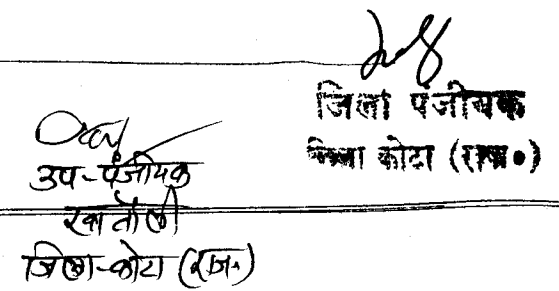 जिला पंजीयक
जिला कोटा (राज०)
उप-पंजीयक
खातौली
जिला-कोटा (राज.)